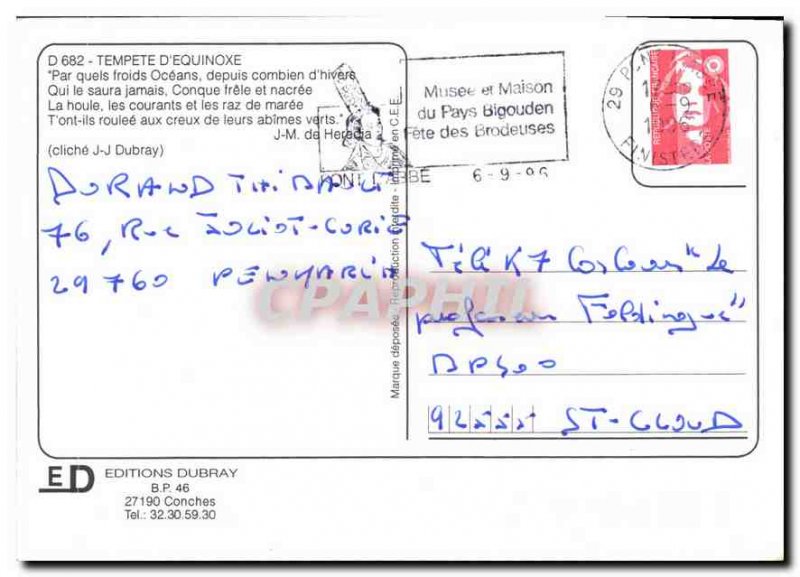 D 682 - TEMPETE D'EQUINOXE
"Par quels froids Océans, depuis combien d'hivers
Qui le saura jamais, Conque frêle et nacrée
La houle, les courants et les raz de marée
T'ont-ils rouleé aux creux de leurs abîmes verts."
J-M. de Heredia
(cliché J-J Dubray)
DURAND THIBAULT
76, Rue JOLIOT-CURIE
29760 PENMARCH
Marque déposée - Reproduction interdite - Imprimé en C.E.E.
Musée et Maison
du Pays Bigouden
Fête des Brodeuses
PONT L'ABBE 6-9-96
29 PONT L'ABBE
FINISTERE
REPUBLIQUE FRANÇAISE
LA POSTE
Télé K7 Concours "Le
professeur Foldingue"
BP 500
92555 ST-CLOUD
CPAPHIL
ED EDITIONS DUBRAY
B.P. 46
27190 Conches
Tel.: 32.30.59.30